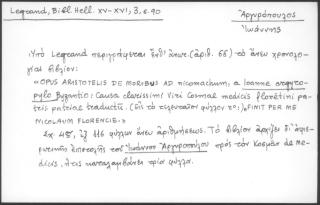 Legrand, Bibl. Hell. XV-XVI, 3, σ. 90
Ἀργυρόπουλος
Ἰωάννης
Ὑπὸ Legrand περιγράφεται ἐνθ' ἀνωτ. (ἀριθ. 66) τὸ ἄνευ χρονολο-
γίας βιβλίον:
«OPUS ARISTOTELIS DE MORIBUS AD nicomachum, a Ioanne argyro-
pylo Byzantio: Causa clarissimi Viri Cosmal medicis florētini pa-
tris patriae traductū. (Εἰς τὸ τελευταῖον φύλλον vo:) «FINIT PER ME
NICOLAUM FLORENCIE.»
Σχ. 4ον, ἐξ 116 φύλλων ἄνευ ἀριθμήσεως. Τὸ βιβλίον ἀρχίζει δι' ἀφιε-
ρωτικῆς ἐπιστολῆς τοῦ Ἰωάννου Ἀργυροπούλου πρὸς τὸν Κοσμᾶν de Me-
dicis, ἥτις καταλαμβάνει τρία φύλλα.